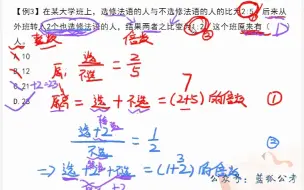 【例3】在某大学班上，选修法语的人与不选修法语的人的比为2:5。后来从
外班转入2个也选修法语的人，结果两者之比变为1:2，这个班原来有（
人。
整数
倍数
A. 10
B. 12
C. 21+2=23
D. 23
原: 选/不选 = 2/5
7
原有 = 选 + 不选 = (2+5) 的倍数 ①
选+2/不选 = 1/2
②
3
=> 选+2+不选 = (1+2) 的倍数
公众号：蓝狐公考